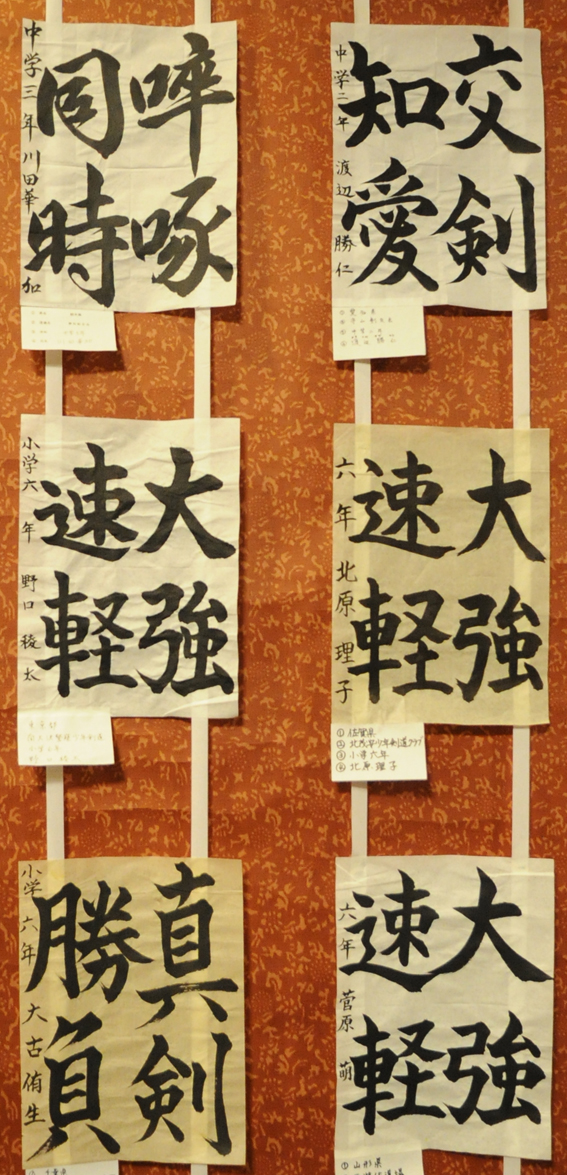 啐啄
同時
中学三年 川田華加
交剣
知愛
中学二年 渡辺勝仁
大強
速軽
小学六年 野口稜太
大強
速軽
六年 北原理子
①佐賀県
②北茂安少年剣道クラブ
③小学六年
④北原理子
真剣
勝負
小学六年 大古侑生
大強
速軽
六年 菅原萌
①山形県